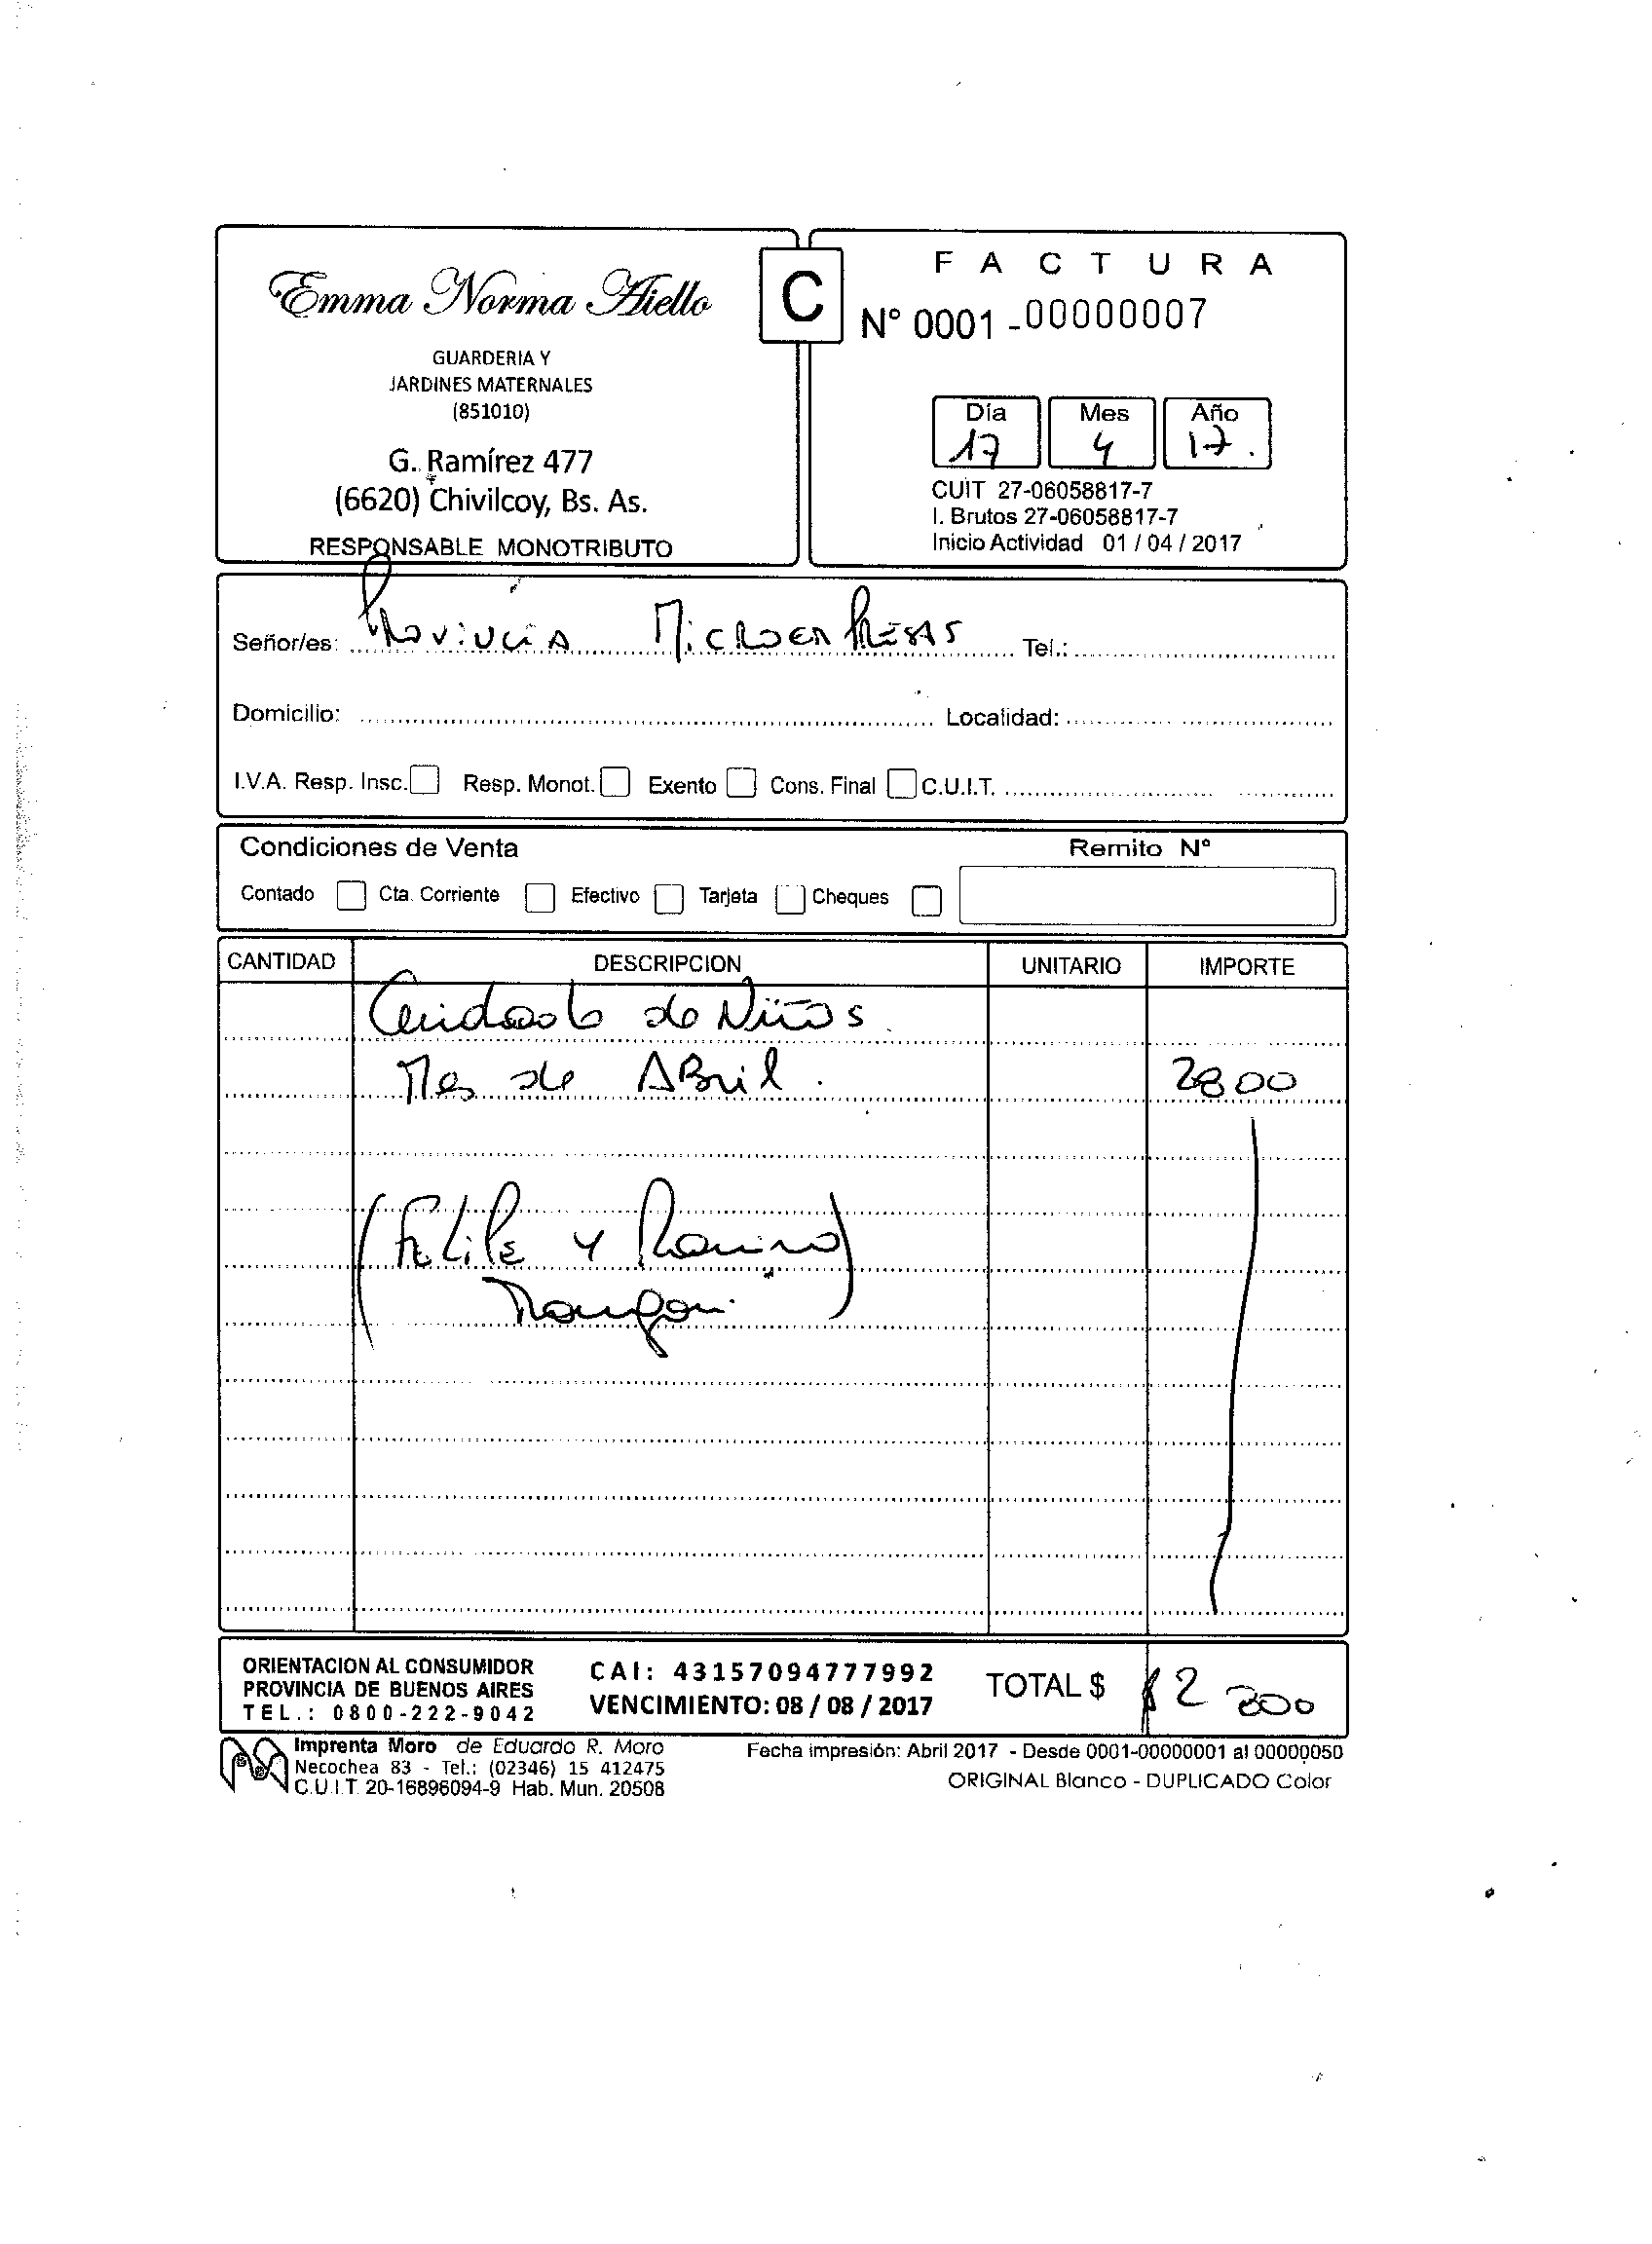 Emma Norma Aiello
GUARDERIA Y
JARDINES MATERNALES
(851010)
G. Ramírez 477
(6620) Chivilcoy, Bs. As.
RESPONSABLE MONOTRIBUTO
C
FACTURA
N° 0001-00000007
Día Mes Año
17 4 17.
CUIT 27-06058817-7
I. Brutos 27-06058817-7
Inicio Actividad 01 / 04 / 2017
Señor/es: Provincia Microempresas Tel.:
Domicilio: Localidad:
I.V.A. Resp. Insc. Resp. Monot. Exento Cons. Final C.U.I.T.
Condiciones de Venta Remito N°
Contado Cta. Corriente Efectivo Tarjeta Cheques
CANTIDAD DESCRIPCION UNITARIO IMPORTE
Cuidado de Niños.
Mes de ABril. 2800
(Felipe y Ramiro)
ORIENTACION AL CONSUMIDOR
PROVINCIA DE BUENOS AIRES
TEL.: 0800-222-9042
CAI: 43157094777992
VENCIMIENTO: 08 / 08 / 2017
TOTAL $ $2800
Imprenta Moro de Eduardo R. Moro
Necochea 83 - Tel.: (02346) 15 412475
C.U.I.T. 20-16896094-9 Hab. Mun. 20508
Fecha impresión: Abril 2017 - Desde 0001-00000001 al 00000050
ORIGINAL Blanco - DUPLICADO Color